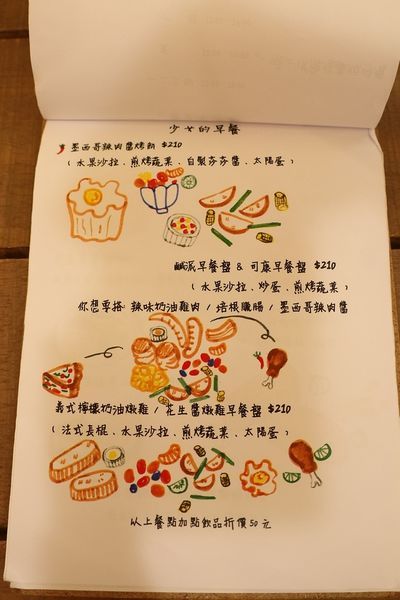 少女的早餐
墨西哥辣肉醬烤餅 $210
(水果沙拉、煎烤蔬菜、自製莎莎醬、太陽蛋)
鹹派早餐盤 & 可康早餐盤 $210
(水果沙拉、炒蛋、煎烤蔬菜)
你想要搭 辣味奶油雞肉 / 培根臘腸 / 墨西哥辣肉醬
義式檸檬奶油燉雞 / 花生醬燉雞早餐盤 $210
(法式長棍、水果沙拉、煎烤蔬菜、太陽蛋)
以上餐點加點飲品折價50元